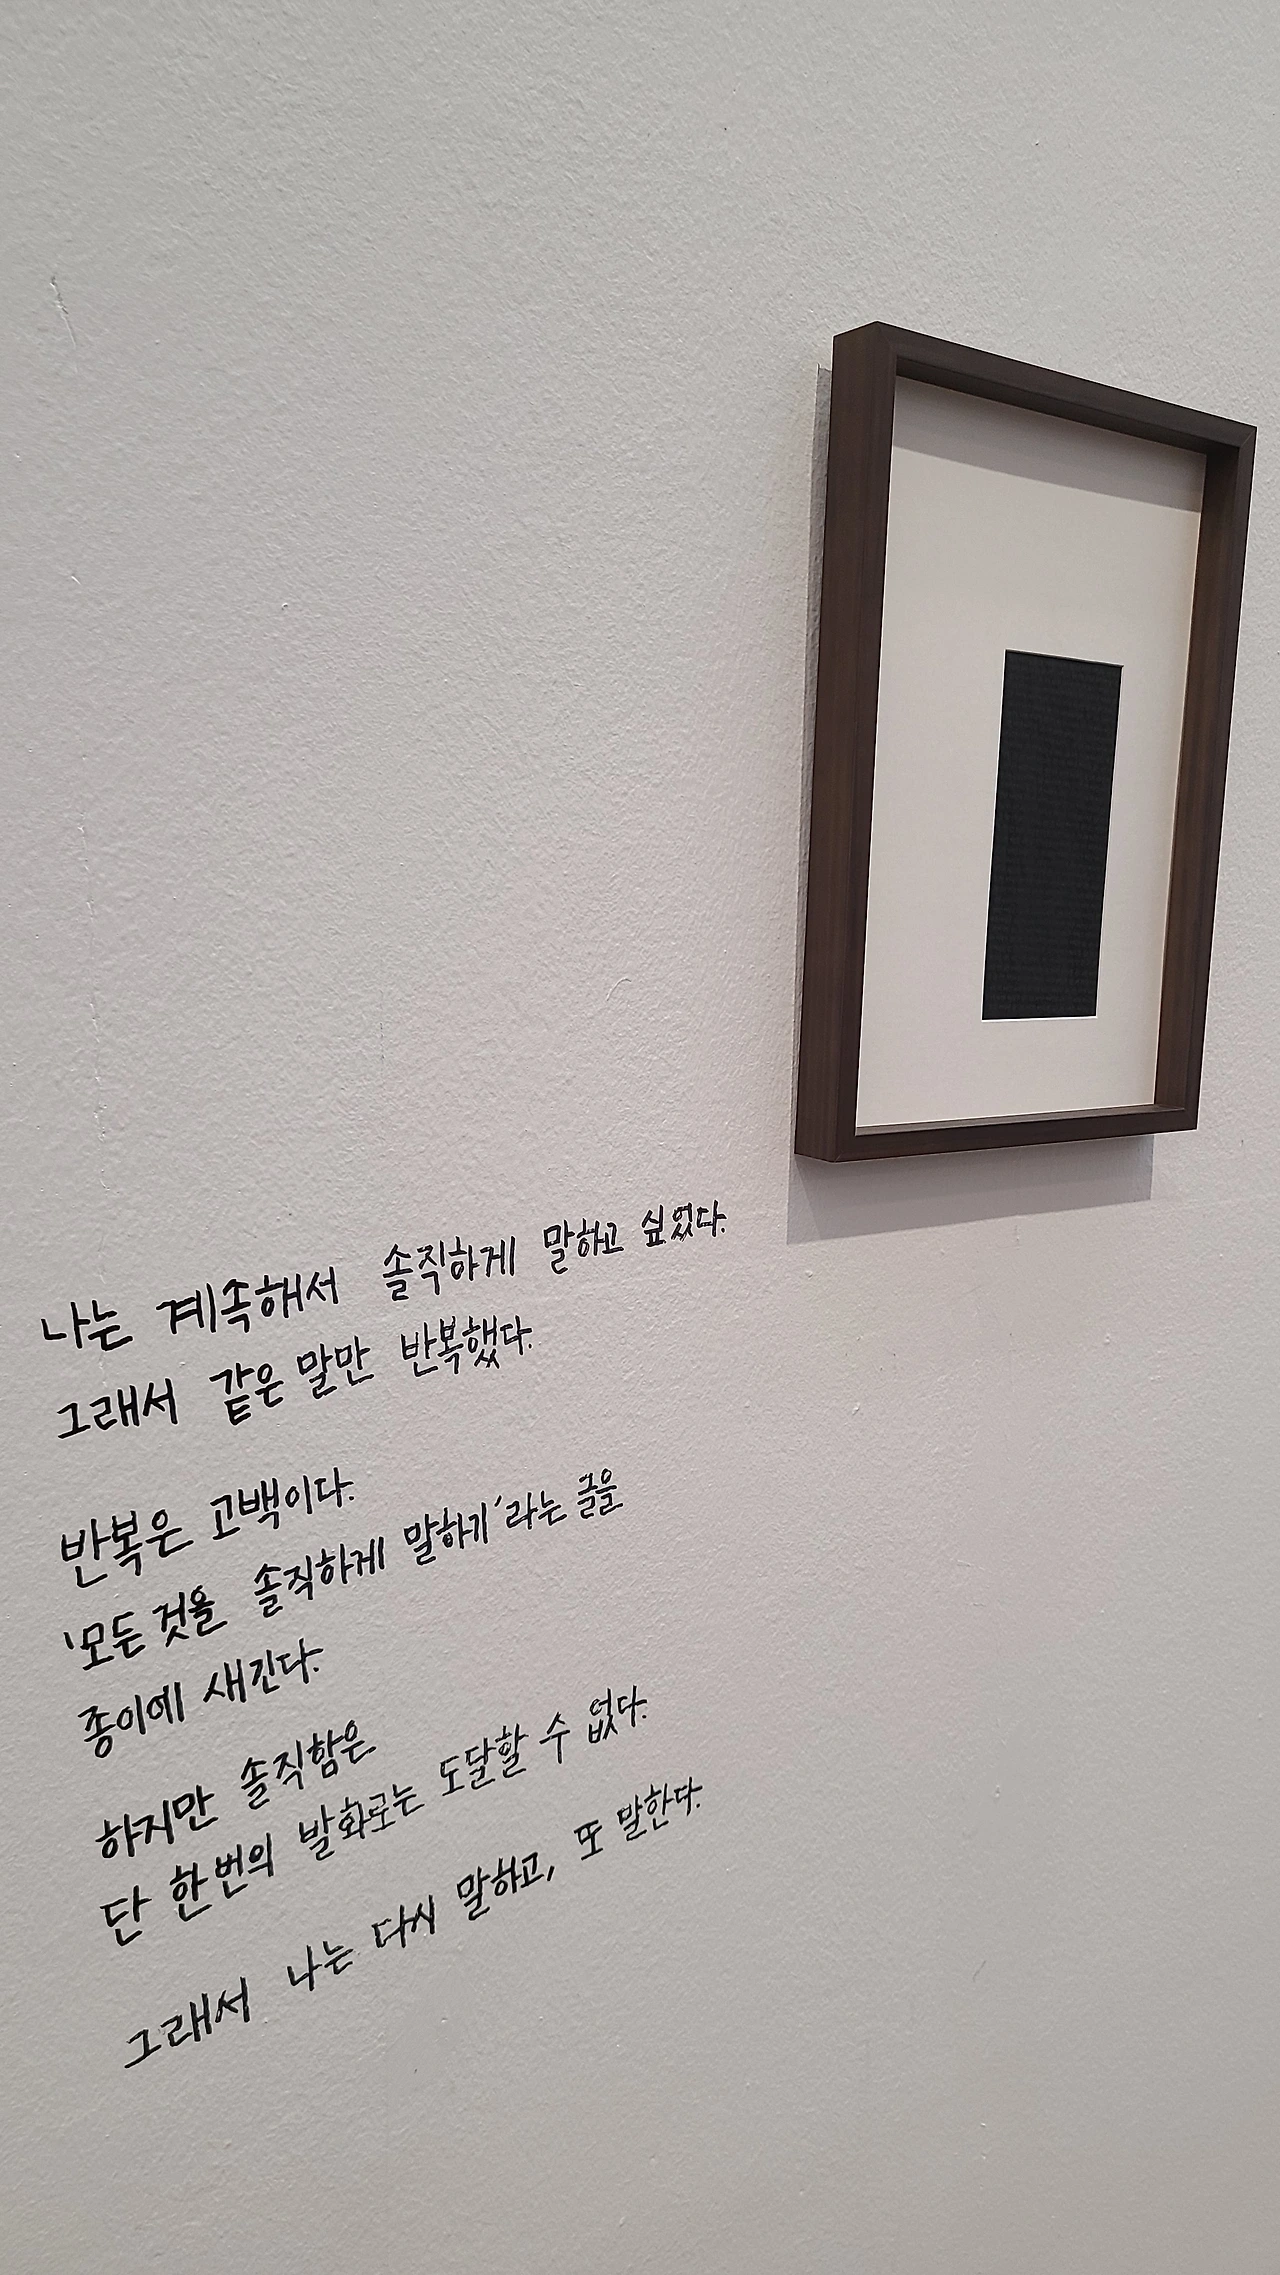 나는 계속해서 솔직하게 말하고 싶었다.
그래서 같은 말만 반복했다.
반복은 고백이다.
'모든 것을 솔직하게 말하기'라는 글을
종이에 새긴다.
하지만 솔직함은
단 한번의 발화로는 도달할 수 없다.
그래서 나는 다시 말하고, 또 말한다.